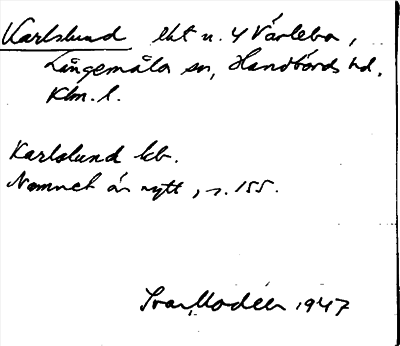 Karlslund lht u. 4 Värlebo,
Långemåla sn, Handbörds hd.
Klm. l.
Karlslund lct.
Namnet är nytt, s. 155.
Ivar Modéer 1947